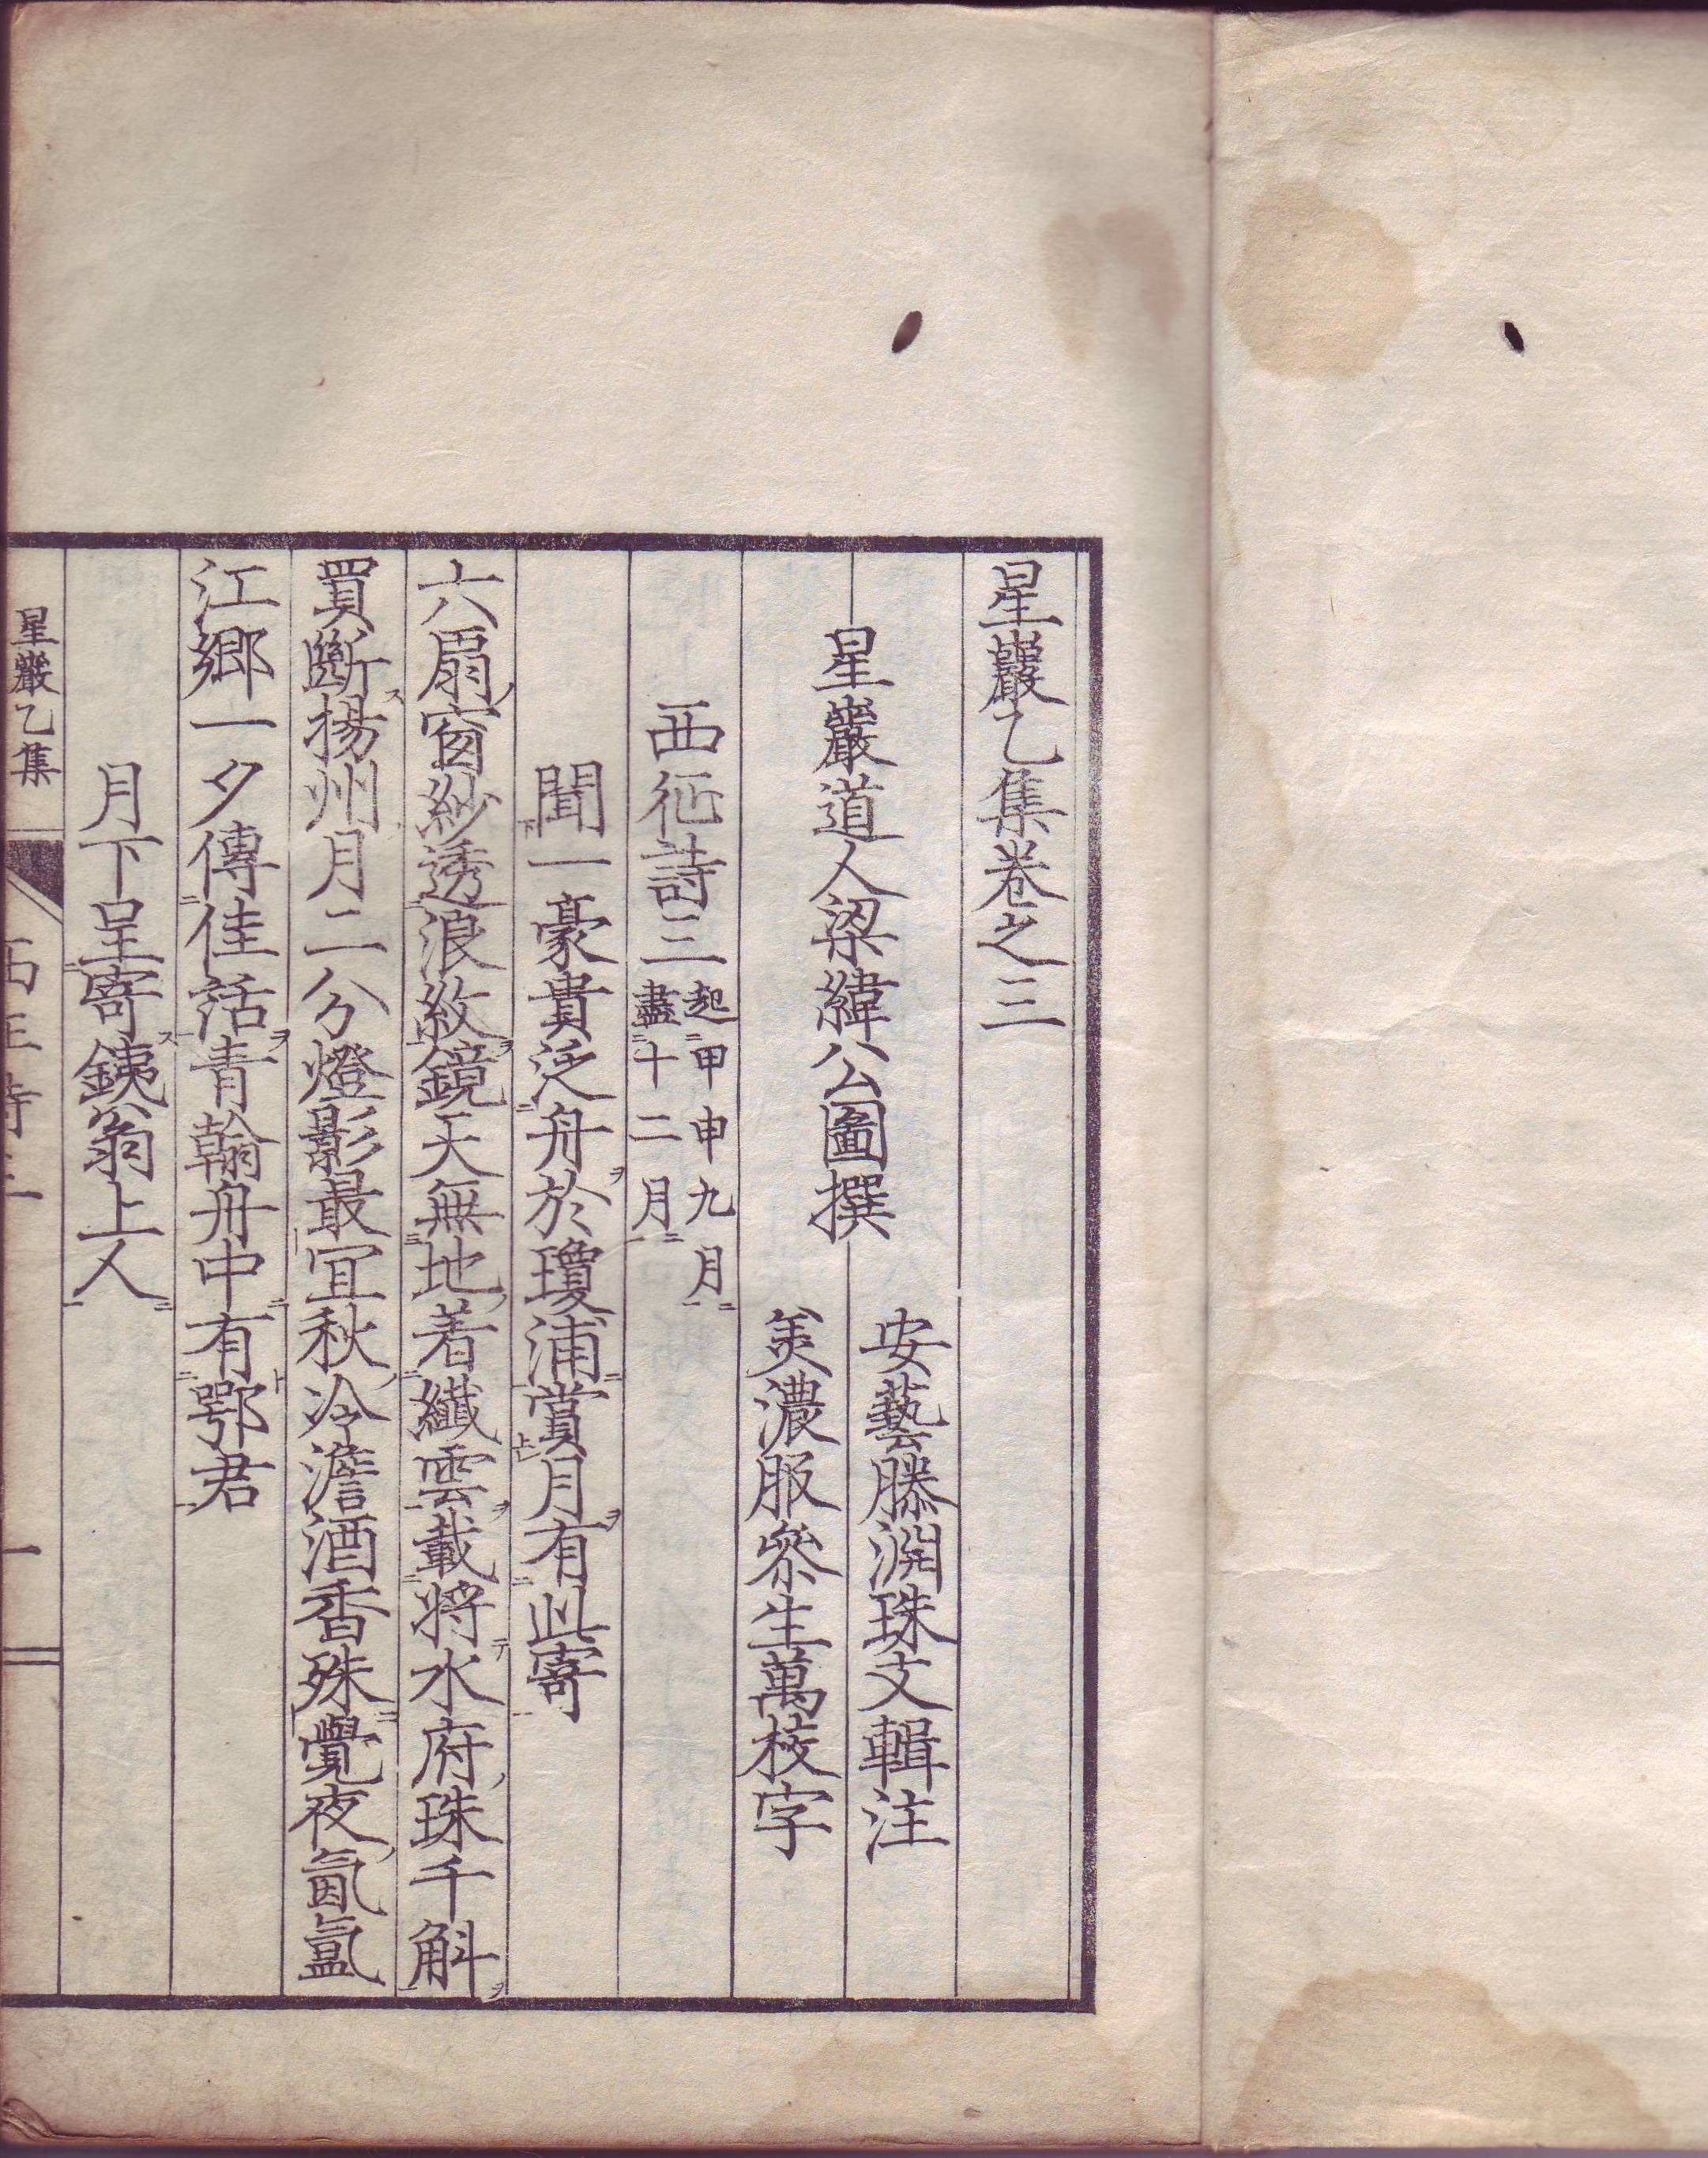 星巖乙集卷之三
星巖道人梁緯公圖撰
安藝滕淵珠文輯注
美濃服參生萬校字
西征詩三
起甲申九月
盡十二月
聞一豪貴泛舟於瓊浦賞月有此寄
六扇窗紗透浪紋鏡天無地着纖雲載將水府珠千斛
買斷揚州月二分燈影最宜秋冷澹酒香殊覺夜氤氳
江鄉一夕傳佳話青翰舟中有鄂君
月下呈寄銕翁上人
星巖乙集
一